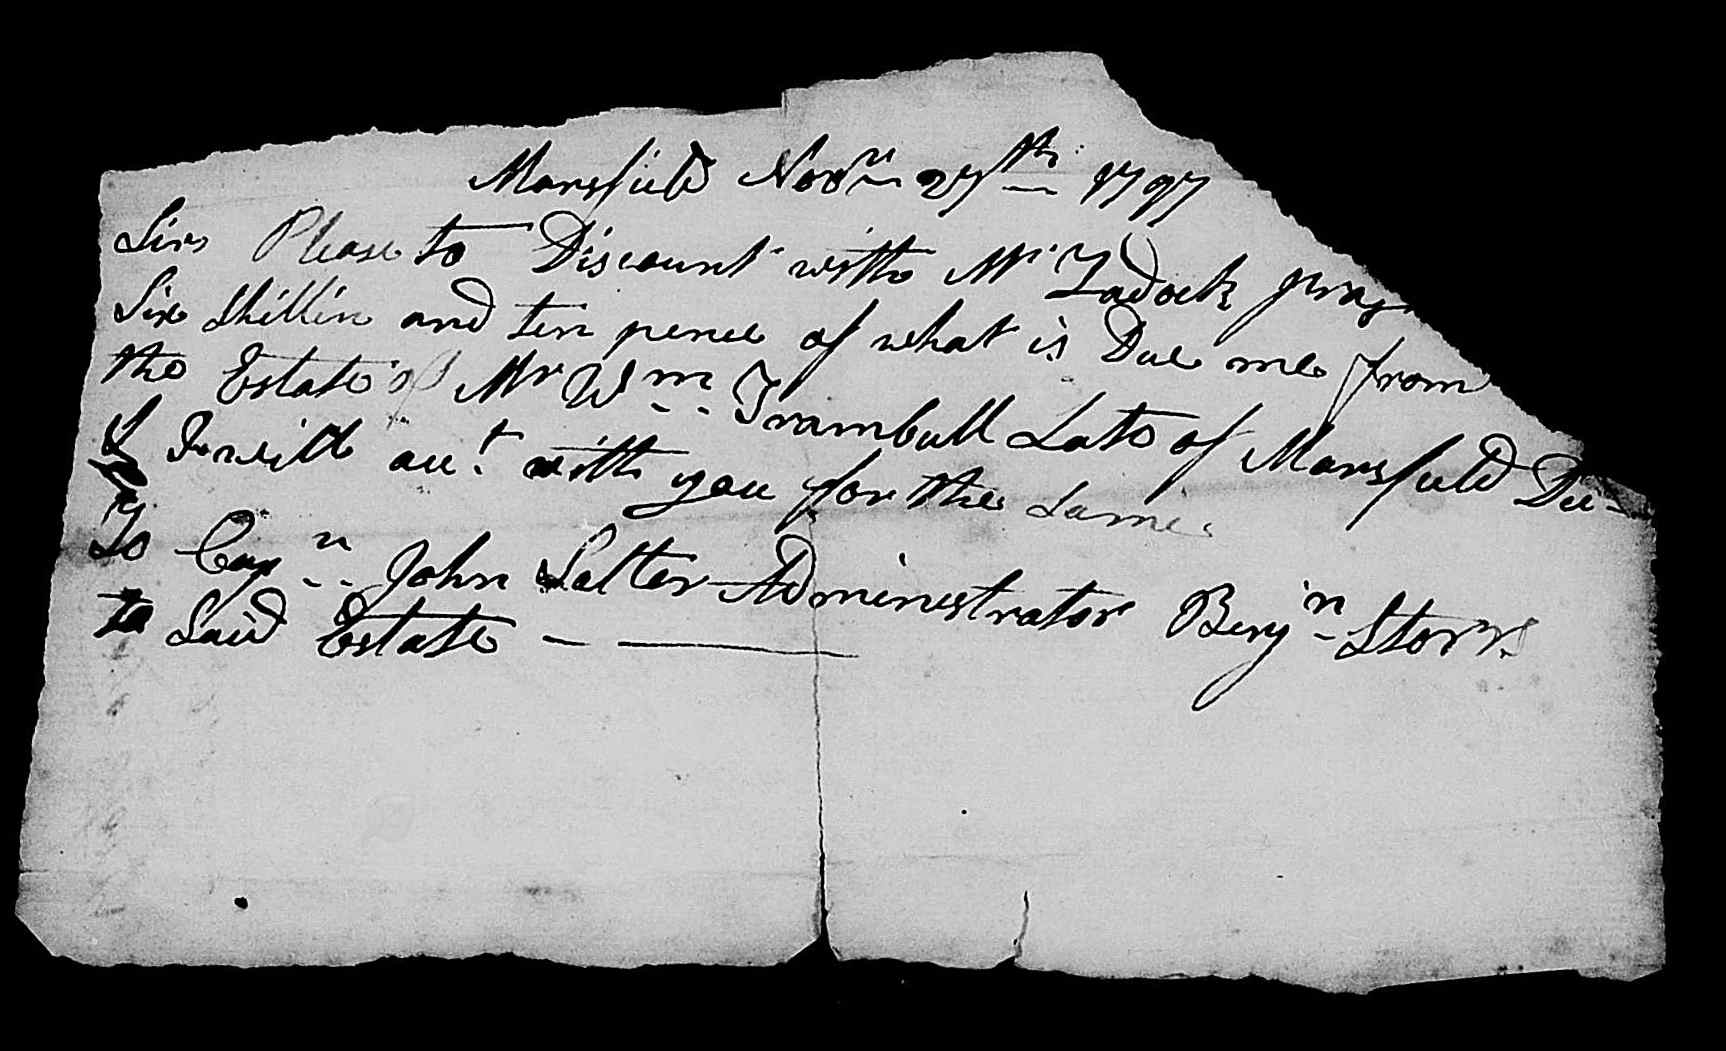 Mansfield Novr 27th 1797
Sir Please to Discount with Mr Zadock
Six Shillin and ten pence of what is Due me from
the Estate of Mr Wm Trambull Late of Mansfield De-
& I will act with you for the Same
To Capn John Salter Administrator Benjn Storrs
to Said Estate